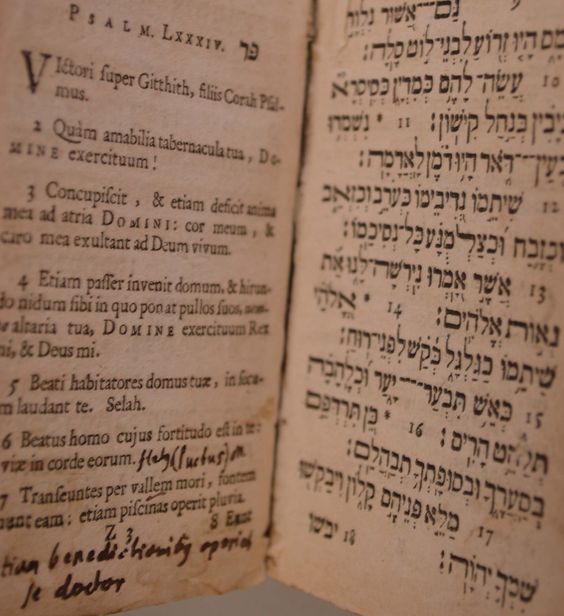 PSALM. LXXXIV. פד
VIctori super Gitthith, filiis Corah Psal-
mus.
2 Quàm amabilia tabernacula tua, Do-
MINE exercituum!
3 Concupiscit, & etiam deficit anima
mea ad atria DOMINI: cor meum, &
caro mea exultant ad Deum vivum.
4 Etiam passer invenit domum, & hirun-
do nidum sibi in quo ponat pullos suos,
altaria tua, DOMINE exercituum Rex
mi, & Deus mi.
5 Beati habitatores domus tuæ, in secu-
lum laudant te. Selah.
6 Beatus homo cujus fortitudo est in te:
viæ in corde eorum.
7 Transeuntes per vallem mori, fontem
ponunt eam: etiam piscinas operit pluvia.
Z 3 8 Eunt
etiam
doctor
גַּם־־אַשּׁוּר נִלְוָה
עִמָּם הָיוּ זְרוֹעַ לִבְנֵי־לוֹט סֶלָה:
10 עֲשֵׂה־לָהֶם כְּמִדְיָן כְּסִיסְרָא
כְיָבִין בְּנַחַל קִישׁוֹן: 11 * נִשְׁמְדוּ
בְעֵין־־דֹּאר הָיוּ דֹּמֶן לָאֲדָמָה:
12 שִׁיתֵמוֹ נְדִיבֵימוֹ כְּעֹרֵב וְכִזְאֵב
וּכְזֶבַח וּכְצַלְמֻנָּע כָּל־נְסִיכֵמוֹ:
13 אֲשֶׁר אָמְרוּ נִירְשָׁה־לָּנוּ אֵת
נְאוֹת אֱלֹהִים: 14 * אֱלֹהַי
שִׁיתֵמוֹ כַגַּלְגַּל כְּקַשׁ לִפְנֵי־רוּחַ:
15 כְּאֵשׁ תִּבְעַר־־יָעַר וּכְלֶהָבָה
תְּלַהֵט הָרִים: 16 * כֵּן תִּרְדְּפֵם
בְּסַעֲרֶךָ וּבְסוּפָתְךָ תְבַהֲלֵם:
17 מַלֵּא פְנֵיהֶם קָלוֹן וִיבַקְשׁוּ
שִׁמְךָ יְהוָה: 18 יֵבֹשׁוּ